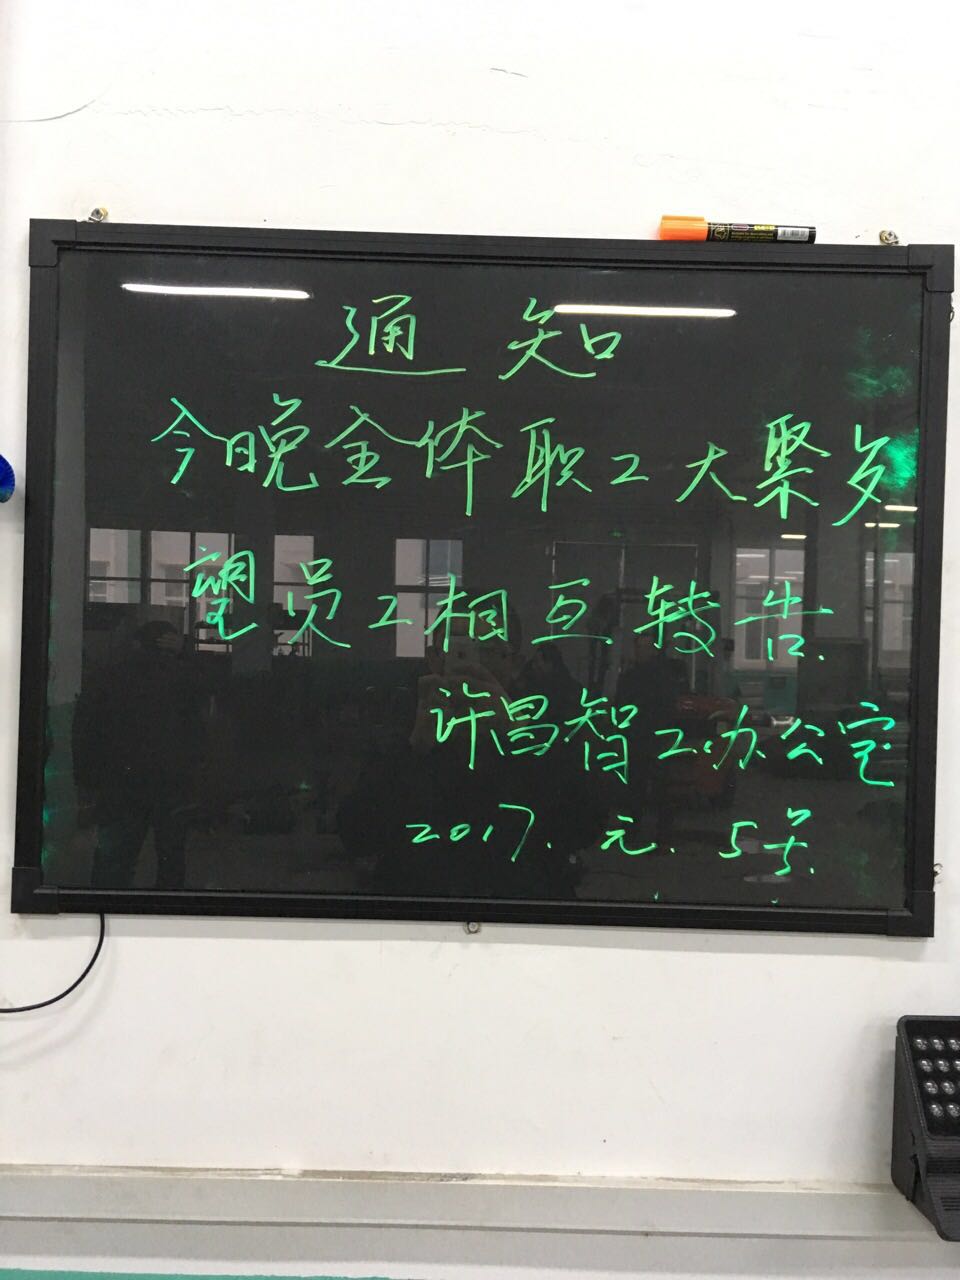 通知
今晚全体职工大聚歺
望员工相互转告.
许昌智工办公室
2017.元.5号.